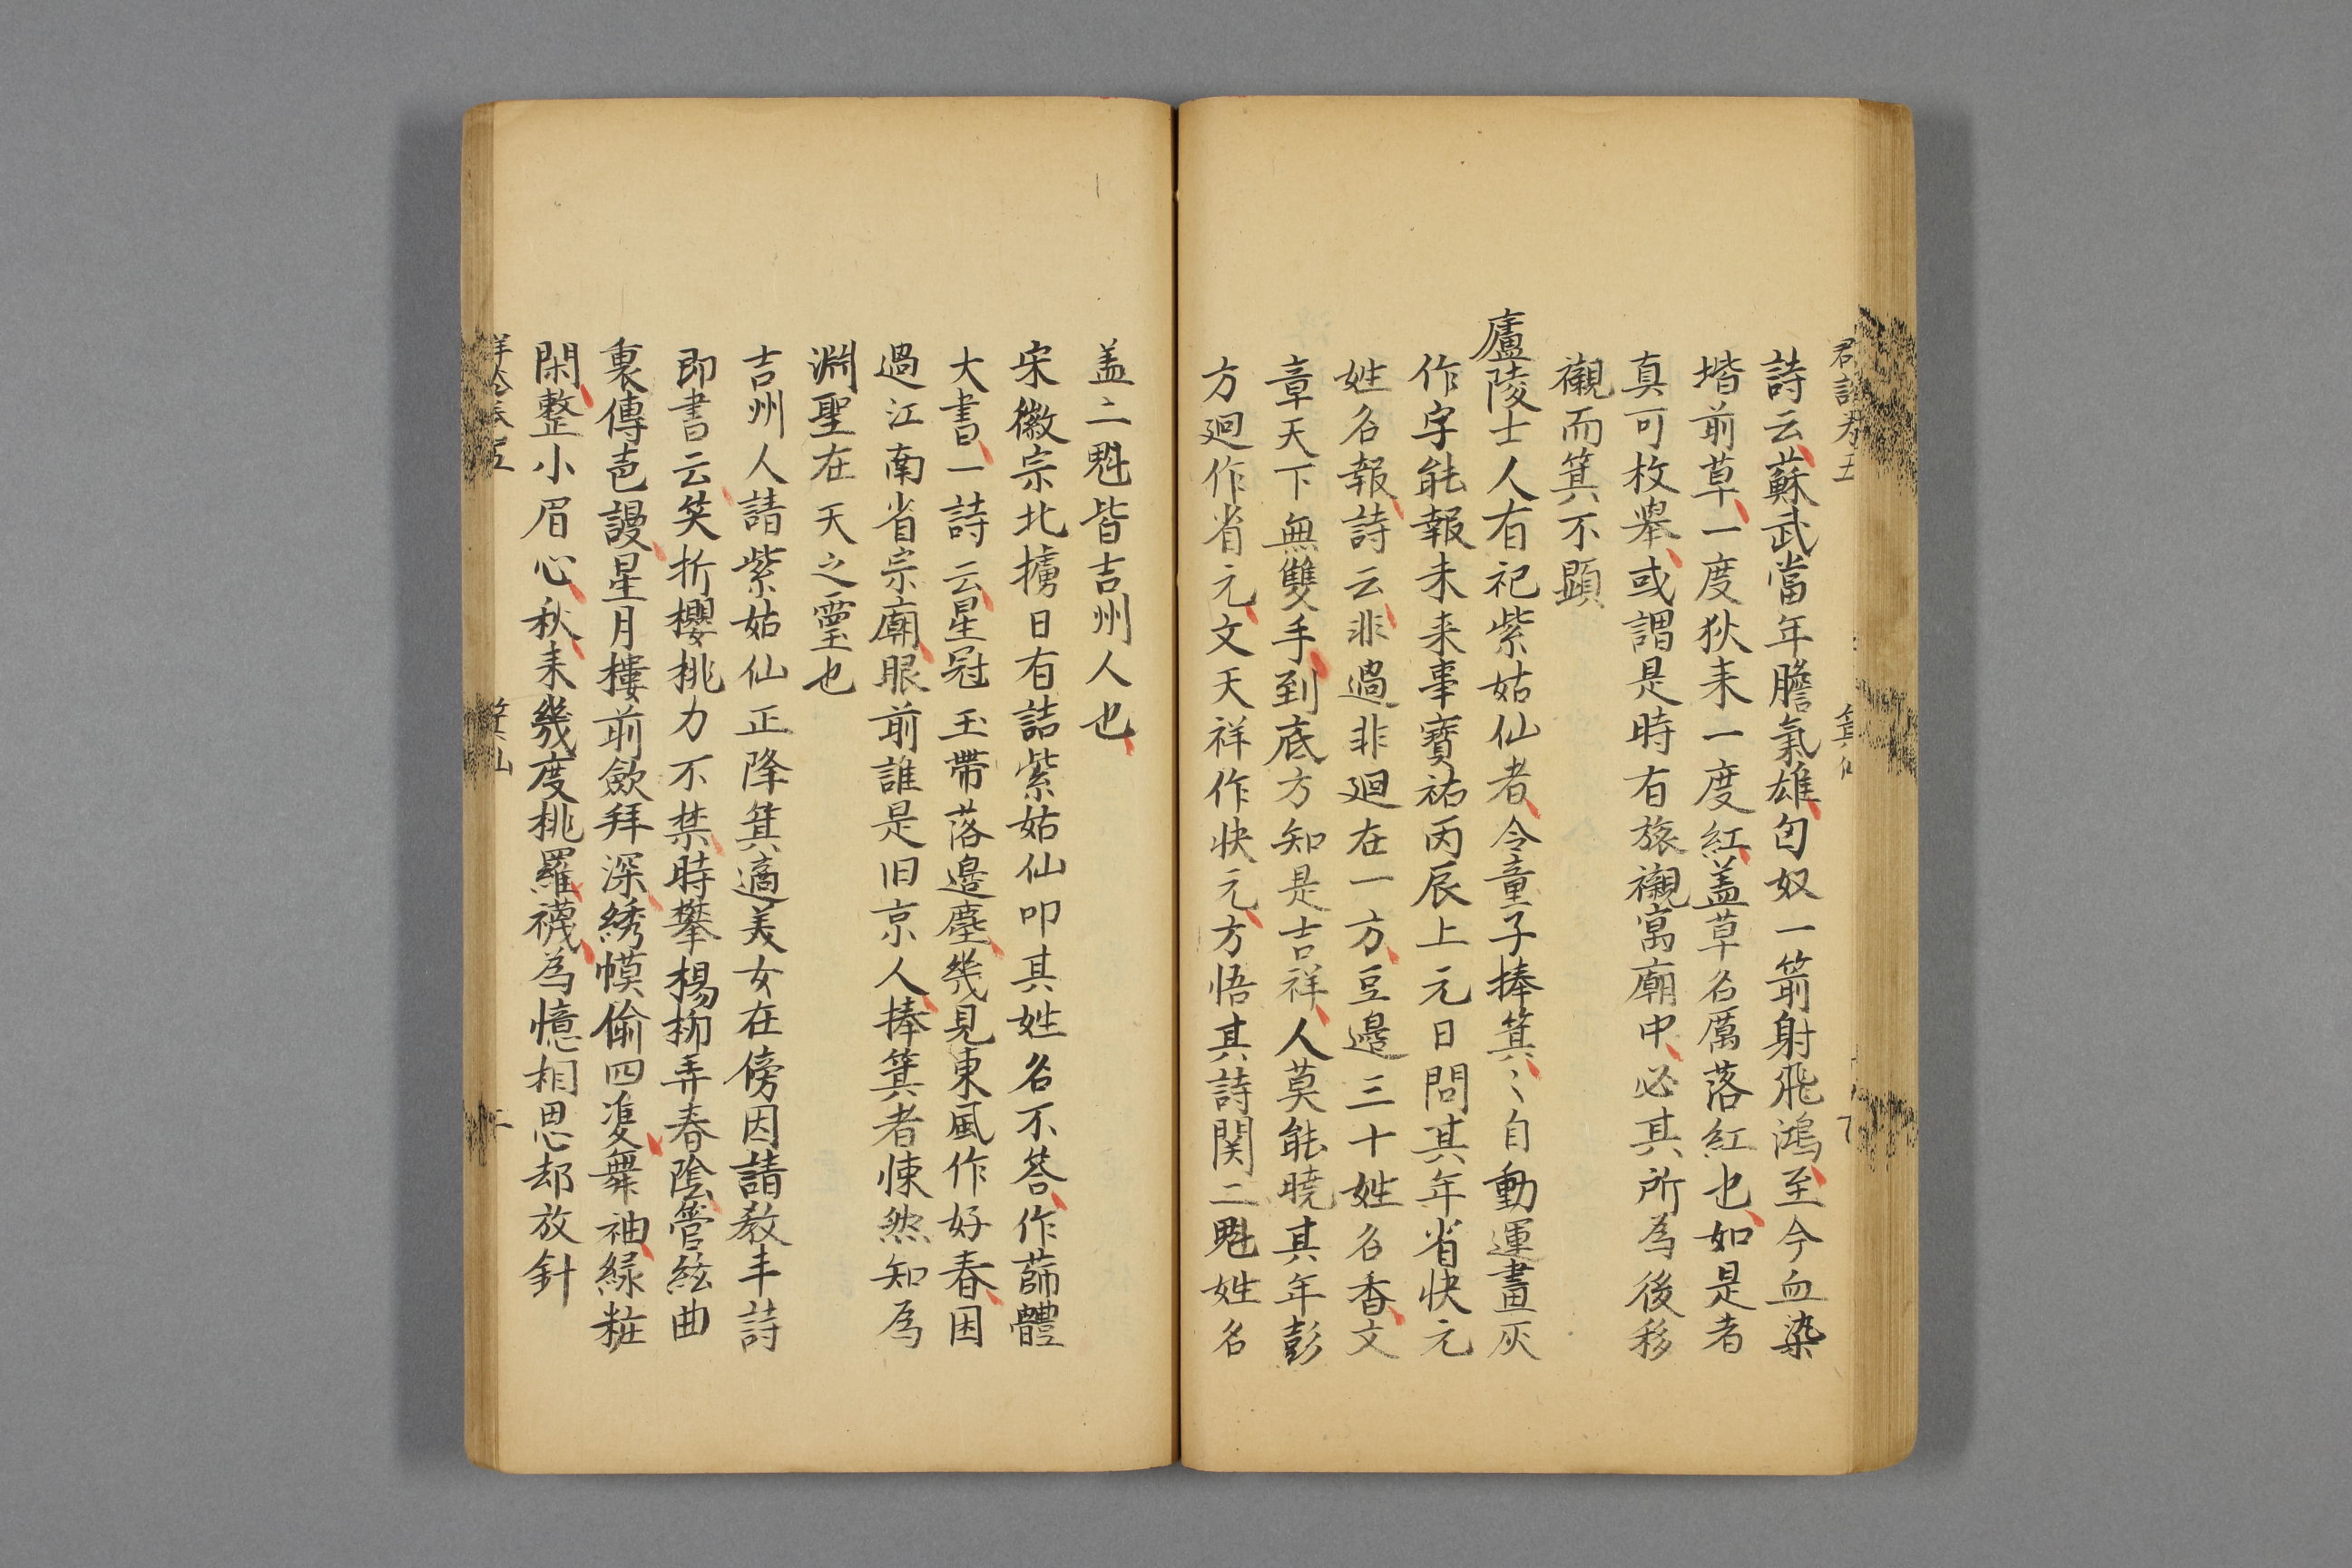 詩云蘇武當年膽氣雄匈奴一箭射飛鴻至今血染
堦前草一度狄来一度紅盖草名厲落紅也如是者
真可枚舉或謂是時有旅襯寓廟中必其所為後移
襯而箕不顕
廬陵士人有祀紫姑仙者令童子捧箕〻自動運畫灰
作字能報未来事寳祐丙辰上元日問其年省快元
姓名報詩云非過非廻在一方豆邉三十姓名香文
章天下無雙手到底方知是吉祥人莫能曉其年彭
方廻作省元文天祥作快元方悟其詩関二魁姓名
盖二魁皆吉州人也
宋徽宗北擄日有詰紫姑仙叩其姓名不荅作蒒體
大書一詩云星冠玉帶落邉塵幾見東風作好春因
過江南省宗廟眼前誰是旧京人捧箕者悚然知為
淵聖在天之靈也
吉州人請紫姑仙正降箕適美女在傍因請教丰詩
即書云笑折櫻桃力不禁時攀楊柳弄春陰管絃曲
裏傳芭謾星月樓前歛拜深綉幙偷四雙舞袖緑粧
閑整小眉心秋来幾度挑羅襪為憶相思却放針